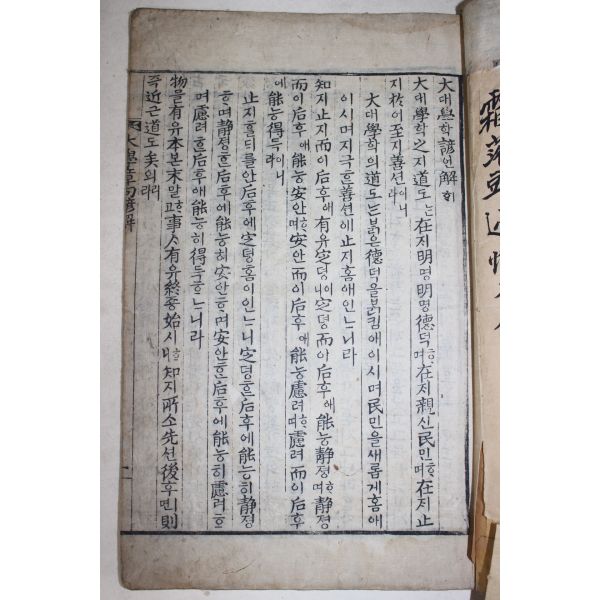 大대學학諺언解ᄒᆡ
大대學학之지道도ᄂᆞᆫ在ᄌᆡ明명明명德덕ᄒᆞ며在ᄌᆡ親신民민ᄒᆞ며在ᄌᆡ止
지於어至지善션이니라
大대學학의道도ᄂᆞᆫ붉은德덕을붉킴애이시며民민을새롭게홈애
이시며지극ᄒᆞᆫ善션에止지홈애인ᄂᆞ니라
知지止지而이后후애有유定뎡이니定뎡而이后후애能능靜졍ᄒᆞ며靜졍
而이后후애能능安안ᄒᆞ며安안而이后후애能능慮려ᄒᆞ며慮려而이后후
애能능得득이니라
止지홀ᄃᆡ를안后후에定뎡홈이인ᄂᆞ니定뎡ᄒᆞᆫ后후에能능히靜졍
ᄒᆞ며靜졍ᄒᆞᆫ后후애能능히安안ᄒᆞ며安안ᄒᆞᆫ后후에能능히慮려ᄒᆞ
며慮려ᄒᆞᆫ后후애能능히得득ᄒᆞᄂᆞ니라
物믈을有유本본末말ᄒᆞ고事ᄉᆞ有유終죵始시ᄒᆞ니知지所소先션後후면則
즉近근道도矣의리라
大學章句諺解